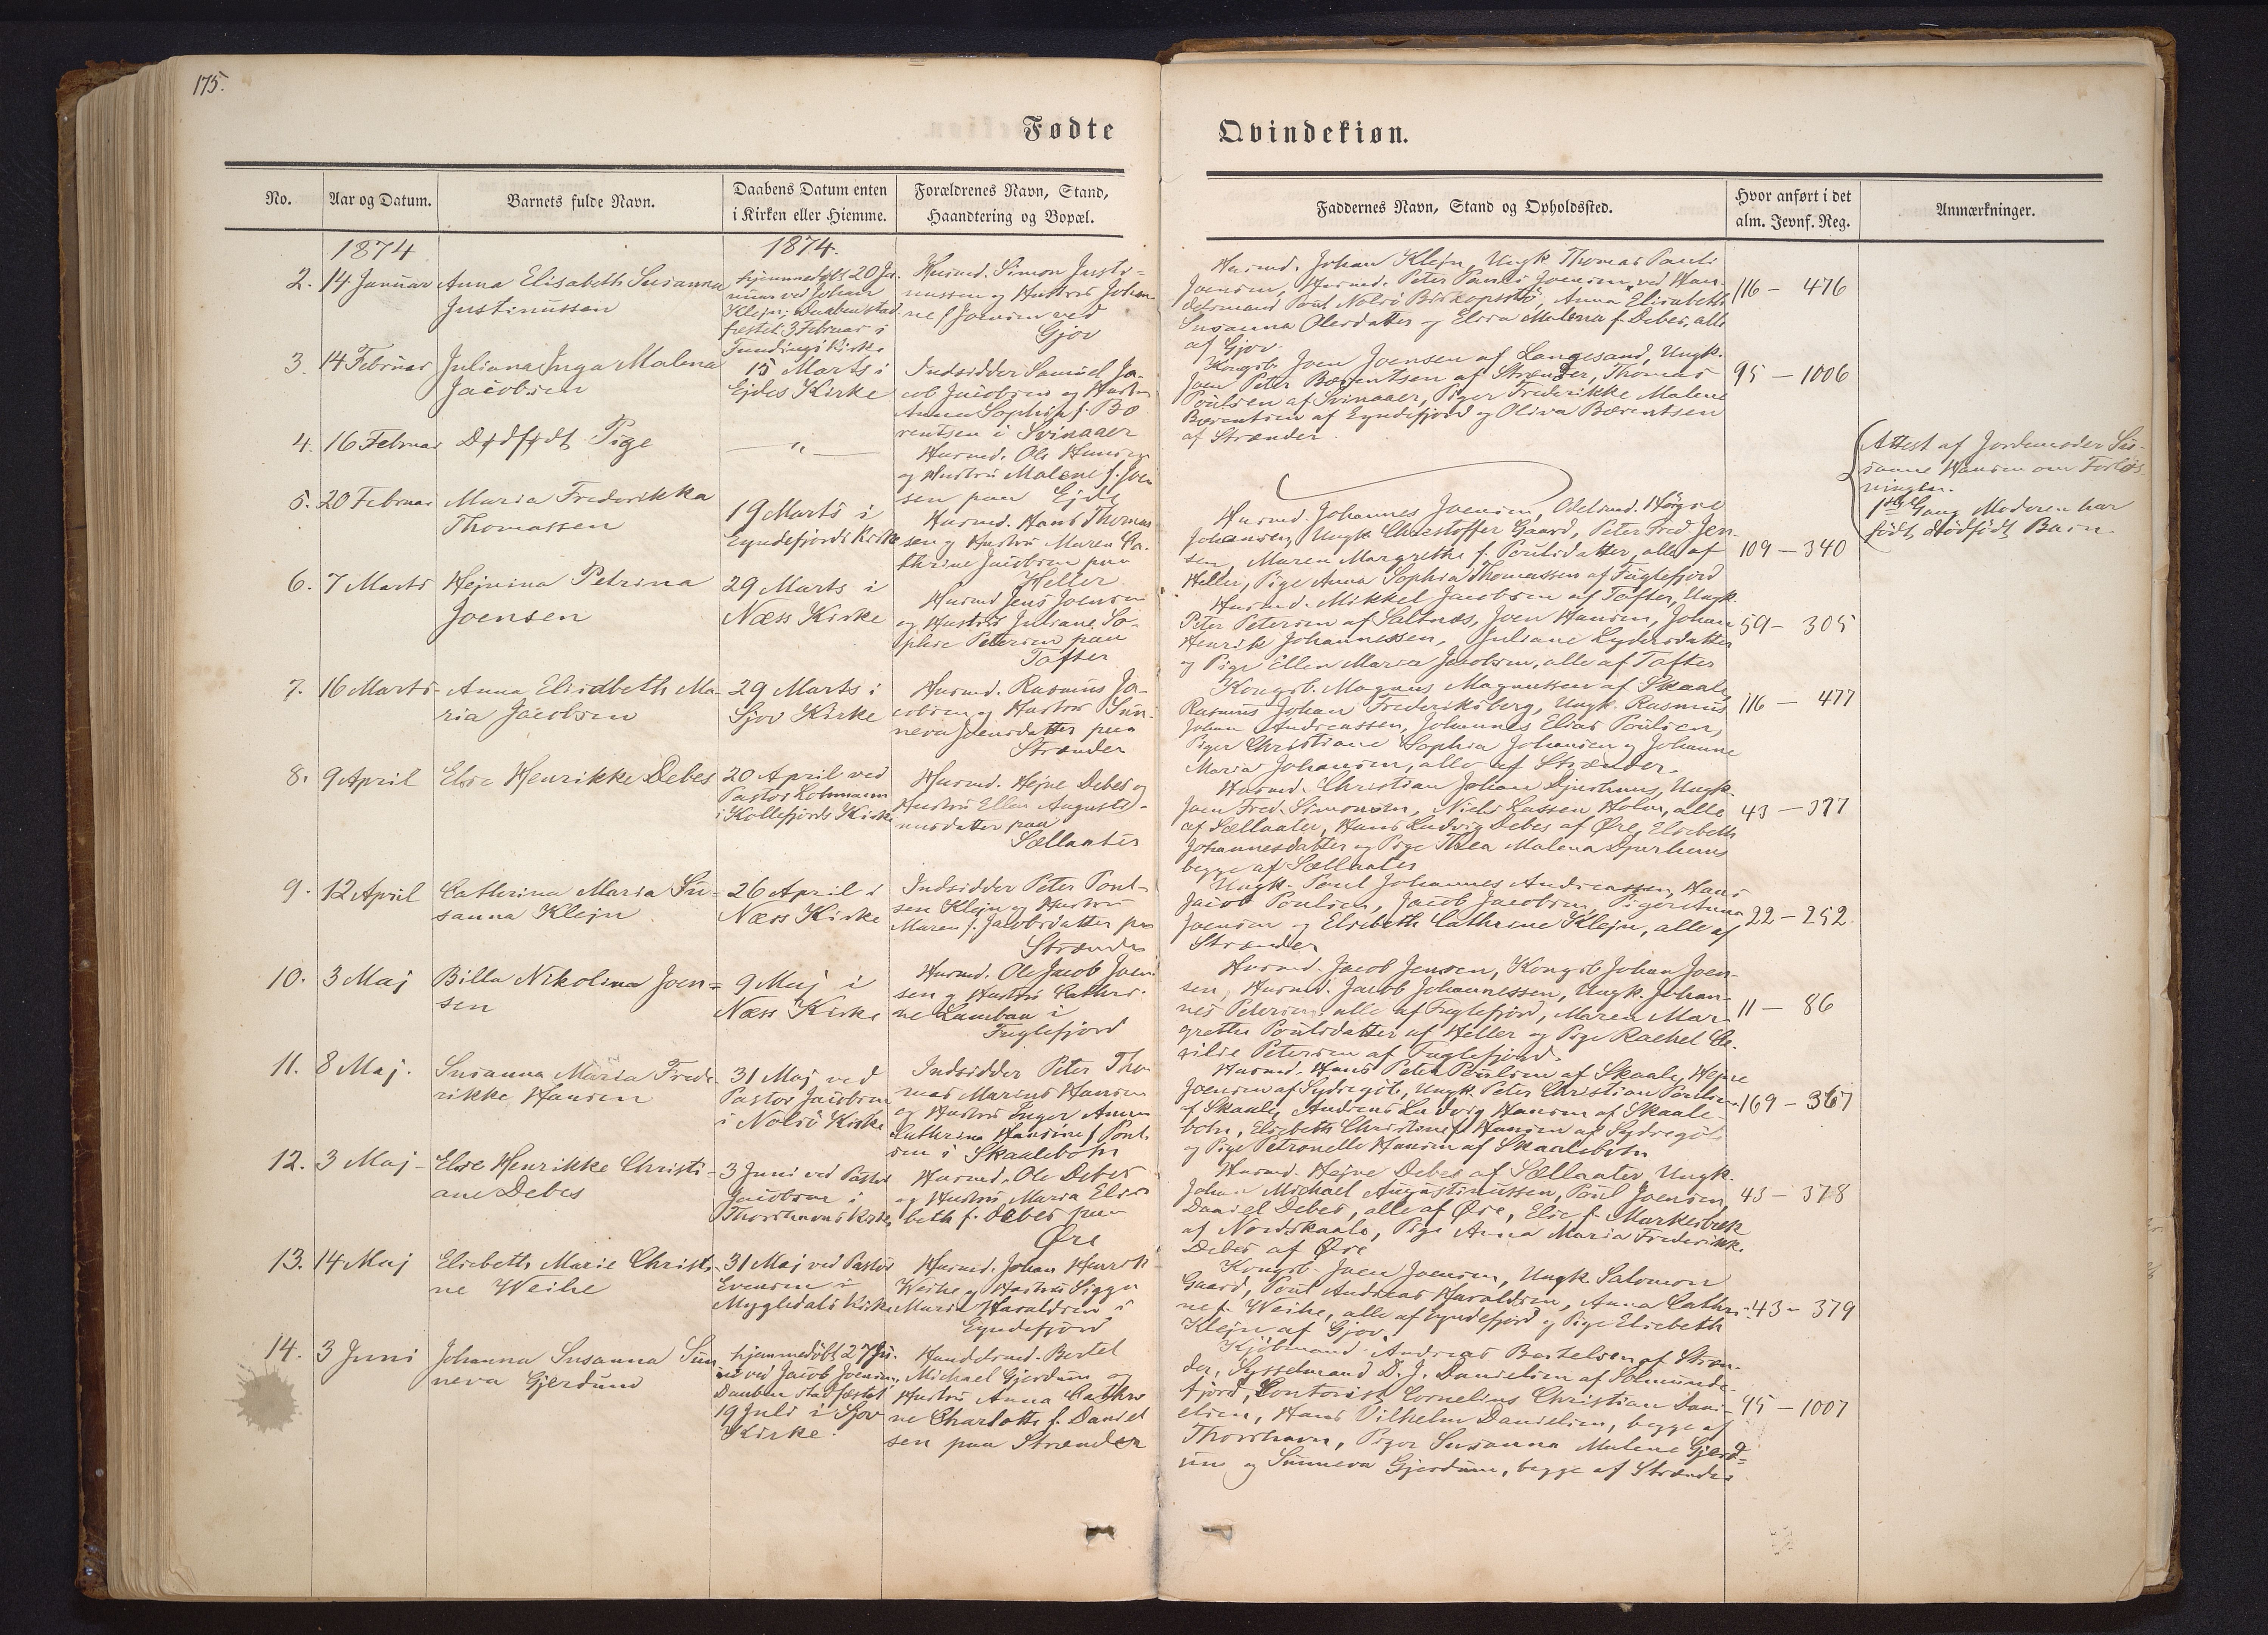 175.
Fødte
Qvindekiøn.
No.
Aar og Datum.
Barnets fulde Navn.
Daabens Datum enten
i Kirken eller Hiemme.
Forældrenes Navn, Stand,
Haandtering og Bopæl.
Faddernes Navn, Stand og Opholdssted.
Hvor anført i det
alm. Jevnf. Reg.
Anmærkninger.
1874
1874.
2. 14 Januar
Anna Elisabeth Susanna
Justinussen
hjemmedøbt 20 Ja-
nuar ved Johan
Klejn; Daaben stad-
fæstet 3 Februar i
Fundings Kirke
Husmd. Simon Justi-
nussen og Hustru Johan-
ne f. Joensen ved
Gjov
Husmd. Johan Klejn, Ungk. Thomas Pauli
Joensen, Husmd. Peter Pauli Joensen, ved Han-
delsmand Poul Nolsö Biskopstö, Anna Elisabeth
Susanna Olesdatter og Elsa Malena f. Debes, alle
af Gjov.
116 - 476
3. 14 Februar
Juliana Inga Malena
Jacobsen
15 Marts i
Ejdes Kirke
Indsidder Samuel Ja-
cob Jacobsen og Hustru
Anna Sophia f. Bæ-
rentsen i Svinaaer
Kongsb. Joen Joensen af Langesand, Ungk.
Joen Peter Bærentsen af Strænder, Thomas
Poulsen af Svinaaer, Piger Frederikke Malene
Bærentsen af Eyndefjord og Oliva Bærentsen
af Strænder.
95 - 1006
4. 16 Februar
Dødfødt Pige
— " —
Husmd. Ole Hansen
og Hustru Malene f. Joen-
sen paa Ejde
Attest af Jordemoder Su-
sanne Hansen om Forløs-
ningen.
1ste Gang Moderen har
født dødfødt Barn.
5. 20 Februar
Maria Frederikka
Thomassen
19 Marts i
Eyndefjords Kirke
Husmd. Hans Thomas-
sen og Hustru Maren Ca-
thrine Jacobsen paa
Heller
Husmd. Johannes Joensen, Odelsmd. Högne
Johansen, Ungk. Christoffer Gaard, Peter Fred. Jen-
sen, Maren Margrethe f. Poulsdatter, alle af
Heller, Pige Anna Sophia Thomassen af Fuglefjord
109 - 340
6. 7 Marts
Hejnina Petrina
Joensen
29 Marts i
Næss Kirke
Husmd Jens Joensen
og Hustru Juliane So-
phie Petersen paa
Tofter
Husmd. Mikkel Jacobsen af Tofter, Ungk.
Peter Petersen af Saltnæs, Joen Hansen, Johan
Henrik Johannessen, Juliane Lydersdatter
og Pige Ellen Maria Jacobsen, alle af Tofter
59 - 305
7. 16 Marts
Anna Elisabeth Ma-
ria Jacobsen
29 Marts i
Sjov Kirke
Husmd. Rasmus Ja-
cobsen og Hustru Sun-
neva Jensdatter paa
Strænder
Kongsb. Magnus Magnussen af Skaale,
Rasmus Johan Frederiksberg, Ungk. Rasmus
Johan Andreassen, Johannes Elias Poulsen,
Piger Christiane Sophia Johansen og Johanne
Maria Johansen, alle af Strænder.
116 - 477
8. 9 April
Else Henrikke Debes
20 April ved
Pastor Lohmann
i Kollefjords Kirke
Husmd. Hejne Debes og
Hustru Ellen Augusti-
nusdatter paa
Sællaater
Husmd. Christian Johan Djurhuus, Ungk.
Joen Fred. Simonsen, Niels Lassen Holm, alle
af Sællaater, Hans Ludvig Debes af Øre, Elsebeth
Johannesdatter og Pige Thea Malena Djurhuus
begge af Sællaater
43 - 377
9. 12 April
Cathrina Maria Su-
sanna Klejn
26 April i
Næss Kirke
Indsidder Peter Poul-
sen Klejn og Hustru
Maren f. Jacobsdatter paa
Strænder
Ungk. Poul Johannes Andreassen, Hans
Jacob Poulsen, Jacob Jacobsen, Piger Anna
Joensen og Elsebeth Cathrine Klejn, alle af
Strænder
22 - 252
10. 3 Maj
Billa Nikolina Joen-
sen
9 Maj i
Næss Kirke
Husmd. Ole Jacob Joen-
sen og Hustru Cathri-
ne Lamban i
Fuglefjord
Husmd. Jacob Jensen, Kongsb. Johan Joen-
sen, Husmd. Jacob Johannessen, Ungk. Johan-
nes Petersen, alle af Fuglefjord, Maren Mar-
grethe Poulsdatter af Heller og Pige Rachel Ce-
cilie Petersen af Fuglefjord.
11 - 86
11. 8 Maj.
Susanna Maria Frede-
rikke Hansen
31 Maj ved
Pastor Jacobsen
i Nolsö Kirke
Indsidder Peter Tho-
mas Marius Hansen
og Hustru Inger Anna
Cathrina Hansine f. Poul-
sen i Skaalebotn
Husmd. Hans Peter Poulsen af Skaale, Hejne
Joensen af Sydregöte, Ungk. Peter Christian Poulsen
af Skaale, Andreas Ludvig Hansen af Skaale-
botn, Elsebeth Christine f. Hansen af Sydregöte
og Pige Petronelle Hansen af Skaalebotn
169 - 367
12. 3 Maj
Else Henrikke Christi-
ane Debes
3 Juni ved Pastor
Jacobsen i
Thorshavns Kirke
Husmd. Ole Debes
og Hustru Maria Elsa-
beth f. Debes paa
Øre
Husmd. Hejne Debes af Sællaater, Ungk.
Johan Michael Augustinussen, Poul Joensen,
Daniel Debes, alle af Øre, Else f. Markesbæk
af Nordskaale, Pige Anna Maria Frederikk.
Debes af Øre
43 - 378
13. 14 Maj
Elsebeth Marie Christi-
ne Weihe
31 Maj ved Pastor
Evensen i
Mygledals Kirke
Husmd. Johan Henrik
Weihe og Hustru Sigga
Maria Haraldsen i
Eyndefjord
Kongsb. Joen Joensen, Ungk Salomon
Gaard, Poul Andreas Haraldsen, Anna Cathri-
ne f. Weihe, alle af Eyndefjord og Pige Elsebeth
Klejn af Gjov.
43 - 379
14. 3 Juni
Johanna Susanna Sun-
neva Gjerdum
hjemmedöbt 27 Ju-
ni ved Jacob Joensen,
Daaben stadfæstet
19 Juli i Sjov
Kirke.
Handelsmd. Bertel
Michael Gjerdum og
Hustru Anna Cathri-
ne Charlotte f. Daniel-
sen paa Strænder
Kjöbmand Andreas Bertelsen af Stræn-
der, Sysselmand D. J. Danielsen af Solmunde-
fjord, Contorist Cornelius Christian Dani-
elsen, Hans Vilhelm Danielsen, begge af
Thorshavn, Piger Susanna Malene Gjerd-
um og Sunneva Gjerdum, begge af Strænder
95 - 1007